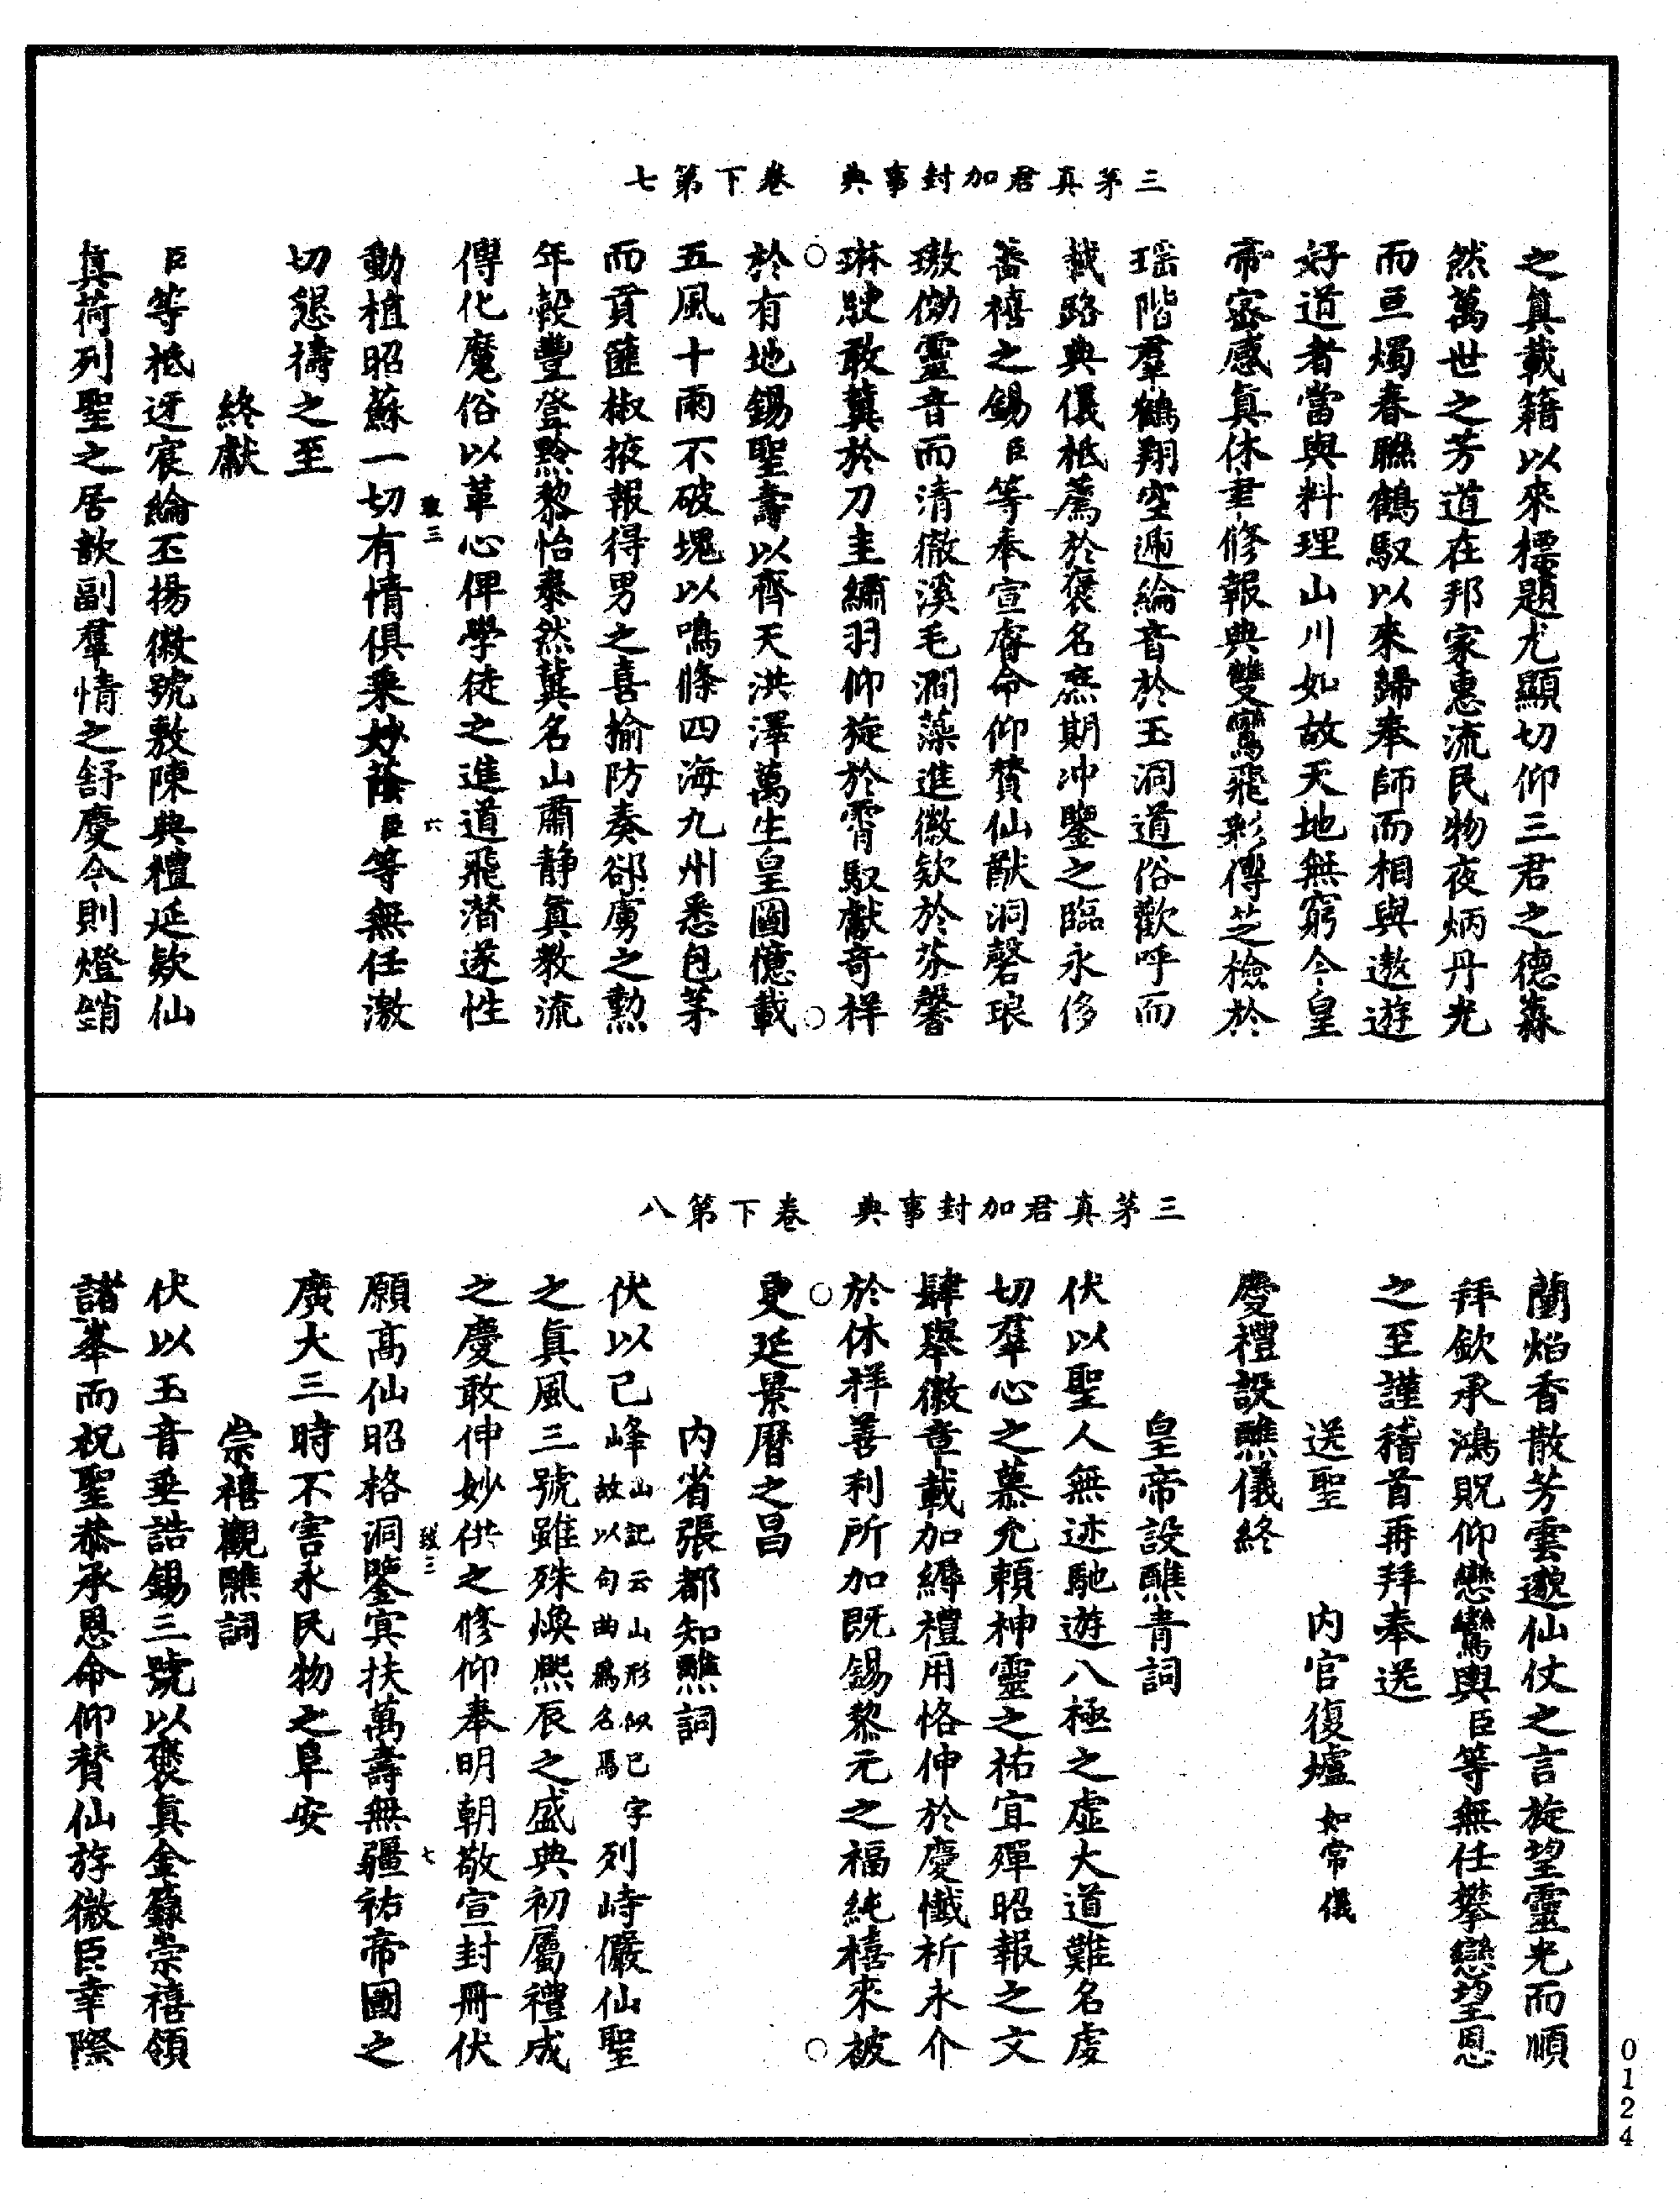 三茅真君加封事典　卷下第七
之真載籍以來標題尤顯切仰三君之德森
然萬世之芳道在邦家惠流民物夜炳丹光
而亘燭春聯鶴馭以來歸奉師而相與遨遊
好道者當與料理山川如故天地無窮今皇
帝密感真休聿修報典雙鸞飛彩傳芝檢於
瑶階羣鶴翔空遞綸音於玉洞道俗歡呼而
載路典儀祗薦於褒名庶期冲鑒之臨永侈
蕃禧之錫臣等奉宣睿命仰贊仙猷洞磬琅
璈俲靈音而清徹溪毛澗藻進微欵於芬馨
琳駛敢冀於刀圭繡羽仰旋於霄馭獻奇祥
於有地錫聖壽以齊天洪澤萬生皇圖億載
五風十雨不破塊以鳴條四海九州悉包茅
而貢篚椒掖報得男之喜揄防奏郤虜之勲
年穀豐登黔黎怡泰然冀名山肅静真教流
傳化魔俗以革心俾學徒之進道飛潛遂性
㻏三　六
動植昭蘇一切有情俱乗妙蔭臣等無任激
切懇禱之至
終獻
臣等祗迓宸綸丕揚徽號敷陳典禮延欵仙
真荷列聖之居歆副羣情之舒慶今則燈銷
三茅真君加封事典　卷下第八
蘭焰香散芳雲邈仙仗之言旋望靈光而順
拜欽承鴻貺仰戀鸞輿臣等無任攀戀望恩
之至謹稽首再拜奉送
送聖　内官復爐如常儀
慶禮設醮儀終
皇帝設醮青詞
伏以聖人無迹馳遊八極之虚大道難名虔
切羣心之慕允頼神靈之祐宜殫昭報之文
肆舉徽章載加縟禮用恪伸於慶懴祈永介
於休祥善利所加既錫黎元之福純禧來被
更延景曆之昌
内省張都知醮詞
伏以已峰山記云山形似已字故以句曲爲名焉列峙儼仙聖
之真風三號雖殊煥熙辰之盛典初屬禮成
之慶敢伸妙供之修仰奉明朝敬宣封冊伏
㻏三　七
願高仙昭格洞鑒冥扶萬壽無疆祐帝國之
廣大三時不害永民物之阜安
崇禧觀醮詞
伏以玉音垂誥錫三號以褒真金籙崇禧領
諸峯而祝聖恭承恩命仰賛仙斿微臣幸際
0124